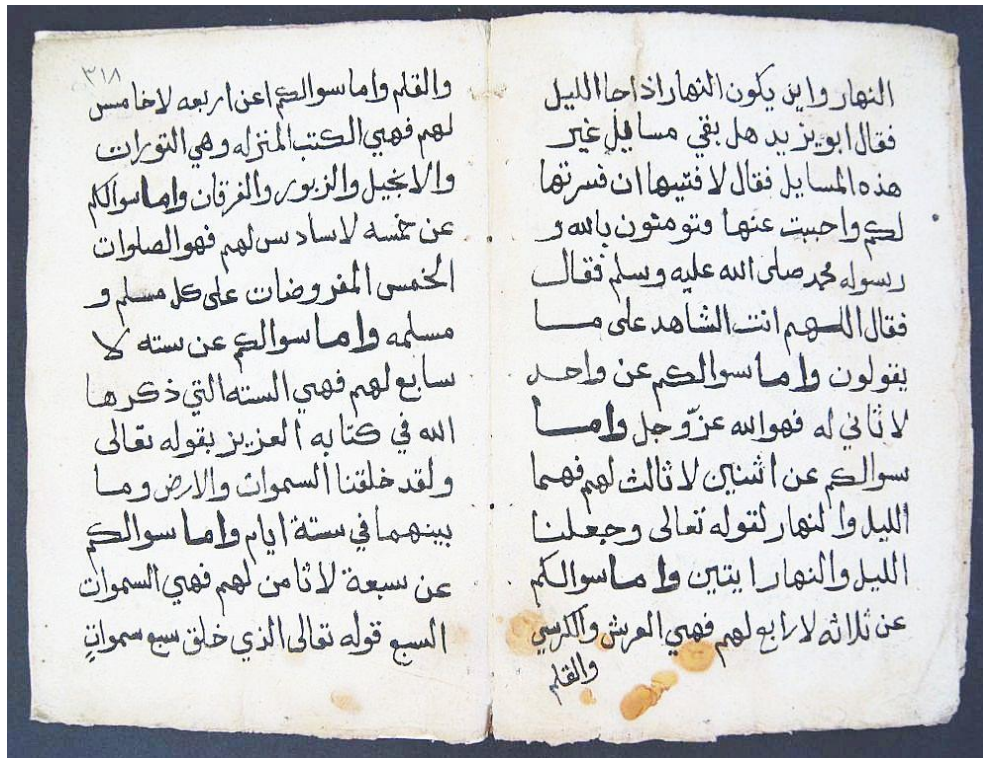 النهار واين يكون النهار اذا جا الليل
فقال ابو يزيد هل بقي مسايل غير
هذه المسايل فقال لا فتيبها ان فسرتها
لكم واجبت عنها وتومنون بالله و
رسوله محمد صلى الله عليه وسلم فقال
فقال اللهم انت الشاهد على ما
يقولون واما سوالكم عن واحد
لا ثاني له فهو الله عزّ وجل واما
سوالكم عن اثنين لا ثالث لهم فهما
الليل والنهار لقوله تعالى وجعلنا
الليل والنهار ايتين واما سوالكم
عن ثلاثه لا رابع لهم فهي العرش والكرسي
والقلم
٣١٨
والقلم واما سوالكم اعن اربعه لا خامس
لهم فهي الكتب المنزله وهي التورات
والانجيل والزبور والفرقان واما سوالكم
عن خمسه لا سادس لهم فهو الصلوات
الخمس المفروضات على كل مسلم و
مسلمه واما سوالكم عن سته لا
سابع لهم فهي السته التي ذكرها
الله في كتابه العزيز بقوله تعالى
ولقد خلقنا السموات والارض وما
بينهما في ستة ايام واما سوالكم
عن سبعة لا ثامن لهم فهي السموات
السبع قوله تعالى الذي خلق سبع سمواتٍ